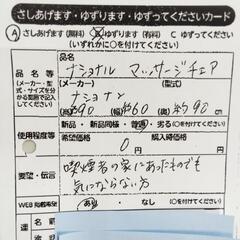 さしあげます・ゆずります・ゆずってくださいカード
Ⓐ さしあげます(無料) B ゆずります(有料) C ゆずってください
(いずれかに○を付けてください)
品名等
(メーカー・型式・サイズを分かる範囲で記入してください)
(品名)
ナショナル マッサージチェア
(メーカー) (型式)
ナショナル
高約90 幅約60 奥約90cm
使用程度等
新品・新品同様・普通・劣る(○を付けてください)
希望価格 購入時価格
0 円 円
要望・伝言
喫煙者の家にあったものでも
気にならない方
WEB掲載希望
あり・なし (○を付けてください)
連